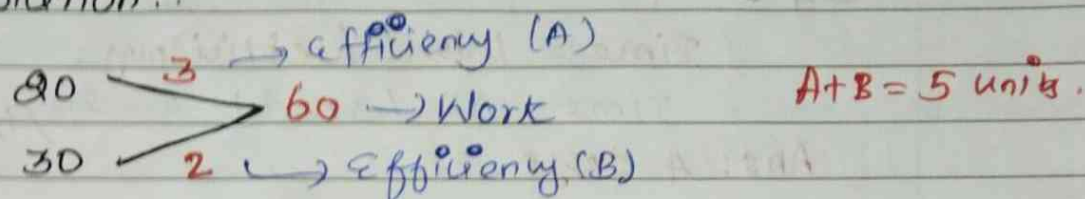 3 → efficiency (A)
20
60 → Work
A+B = 5 units.
30
2 → Efficiency (B)